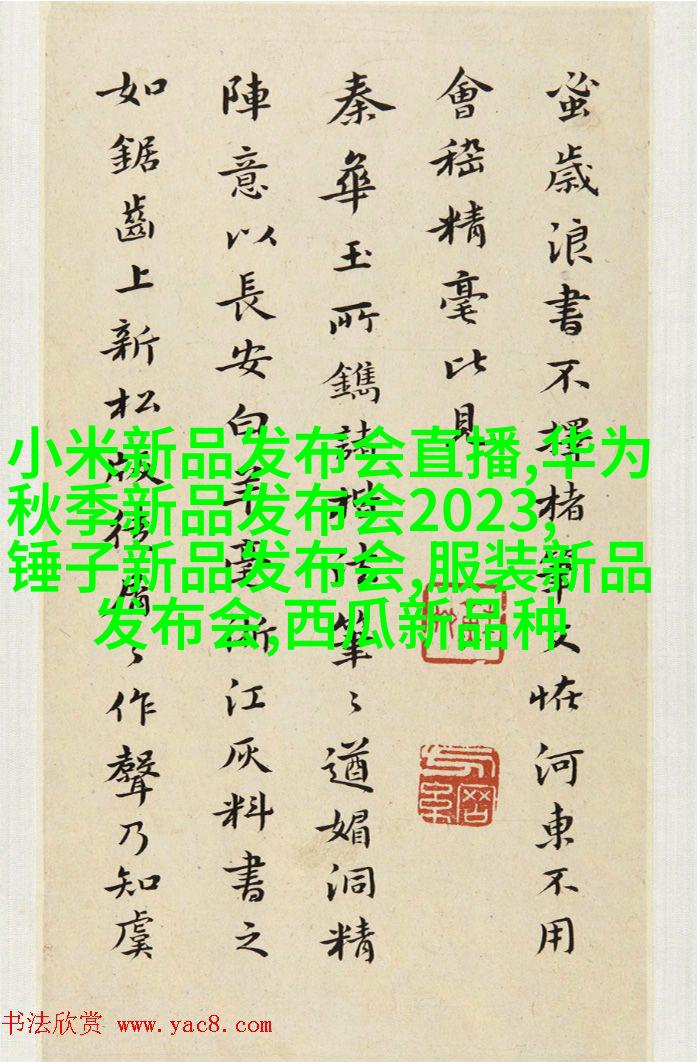 蚤歲浪書不擇楮筆文恠河東不用
會稽精毫比見
秦華玉所鐫諸法筆〻遒媚洞精
陣意以長安白羊毫江灰料書之
如鋸齒上新松版〻作聲乃知虞
小米新品发布会直播,华为
秋季新品发布会2023,
锤子新品发布会,服装新品
发布会,西瓜新品种
书法欣赏 www.yac8.com